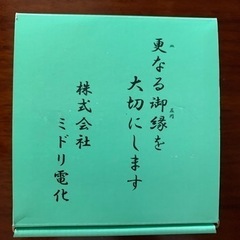 更なる御縁を
大切にします
株式会社
ミドリ電化